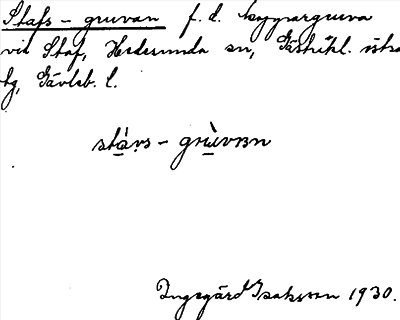 Stafs-gruvan f.d. koppargruva
vid Staf, Hedesunda sn, Gästrikl. östra
tg, Gävleb. l.
stávs-grùvɐn
Ingegärd Isaksson 1930.